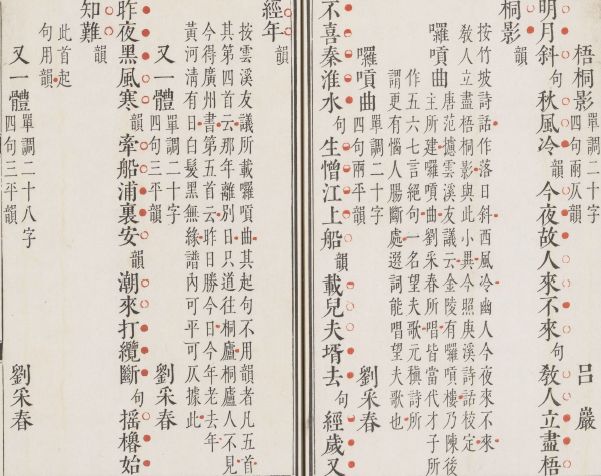 梧桐影 單調二十字 四句兩仄韻 呂巖
明月斜 句 秋風冷 韻 今夜故人來不來 句 敎人立盡梧
桐影 韻
按竹坡詩話作落日斜西風冷幽人今夜來不來
敎人立盡梧桐影與此小異今照庚溪詩話校定
囉嗊曲 唐范攄雲溪友議云金陵有囉嗊樓乃陳後
主所建囉嗊曲劉采春所唱皆當代才子所
作五六七言絕句一名望夫歌元稹詩所
謂更有惱人腸斷處選詞能唱望夫歌也
囉嗊曲 單調二十字 四句兩平韻 劉采春
不喜秦淮水 句 生憎江上船 韻 載兒夫壻去 句 經歲又
經年 韻
按雲溪友議所載囉嗊曲其起句不用韻者凡五首
其第四首云那年離別日只道往桐廬桐廬人不見
今得廣州書第五首云昨日勝今日今年老去年
黃河淸有日白髮黑無緣譜內可平可仄據此
又一體 單調二十字 四句三平韻 劉采春
昨夜黑風寒 韻 牽船浦裏安 韻 潮來打纜斷 句 搖櫓始
知難 韻
此首起
句用韻
又一體 單調二十八字 四句三平韻 劉采春